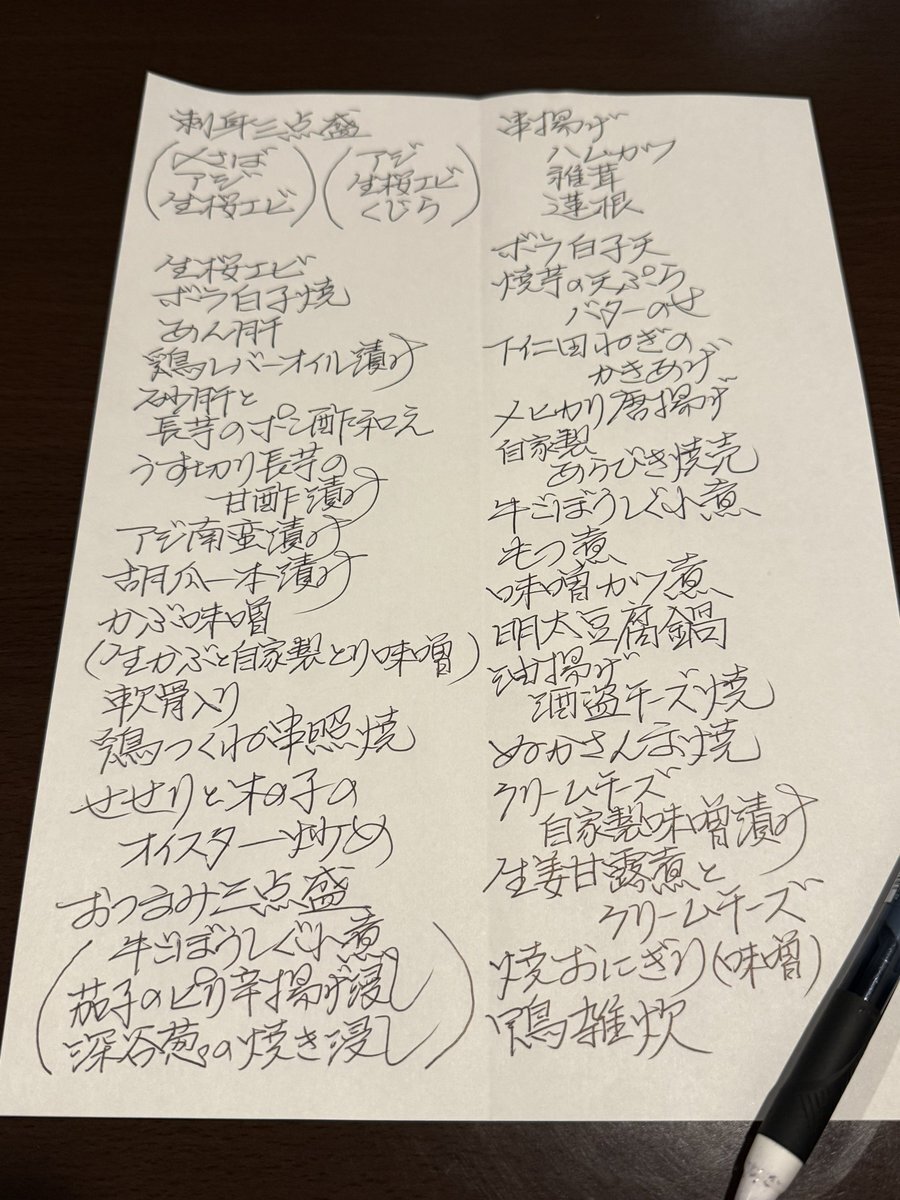 刺身三点盛
(〆さば
アジ
生桜エビ)
(アジ
生桜エビ
くじら)
生桜エビ
ボラ白子焼
あん肝
鶏レバーオイル漬け
砂肝と
長芋のポン酢和え
うす切り長芋の
甘酢漬け
アジ南蛮漬け
胡瓜一本漬け
かぶ味噌
(生かぶと自家製とり味噌)
軟骨入り
鶏つくね串照焼
せせりと木の子の
オイスター炒め
おつまみ三点盛
(牛ごぼうしぐれ煮
茄子のピリ辛揚げ浸し
深谷葱の焼き浸し)
串揚げ
ハムカツ
椎茸
蓮根
ボラ白子天
焼芋の天ぷら
バターのせ
下仁田ねぎの
かきあげ
メヒカリ唐揚げ
自家製
あらびき焼売
牛ごぼうしぐれ煮
もつ煮
味噌カツ煮
明太豆腐鍋
油揚げ
酒盗チーズ焼
ぬかさんま焼
クリームチーズ
自家製味噌漬け
生姜甘露煮と
クリームチーズ
焼おにぎり(味噌)
鴨雑炊